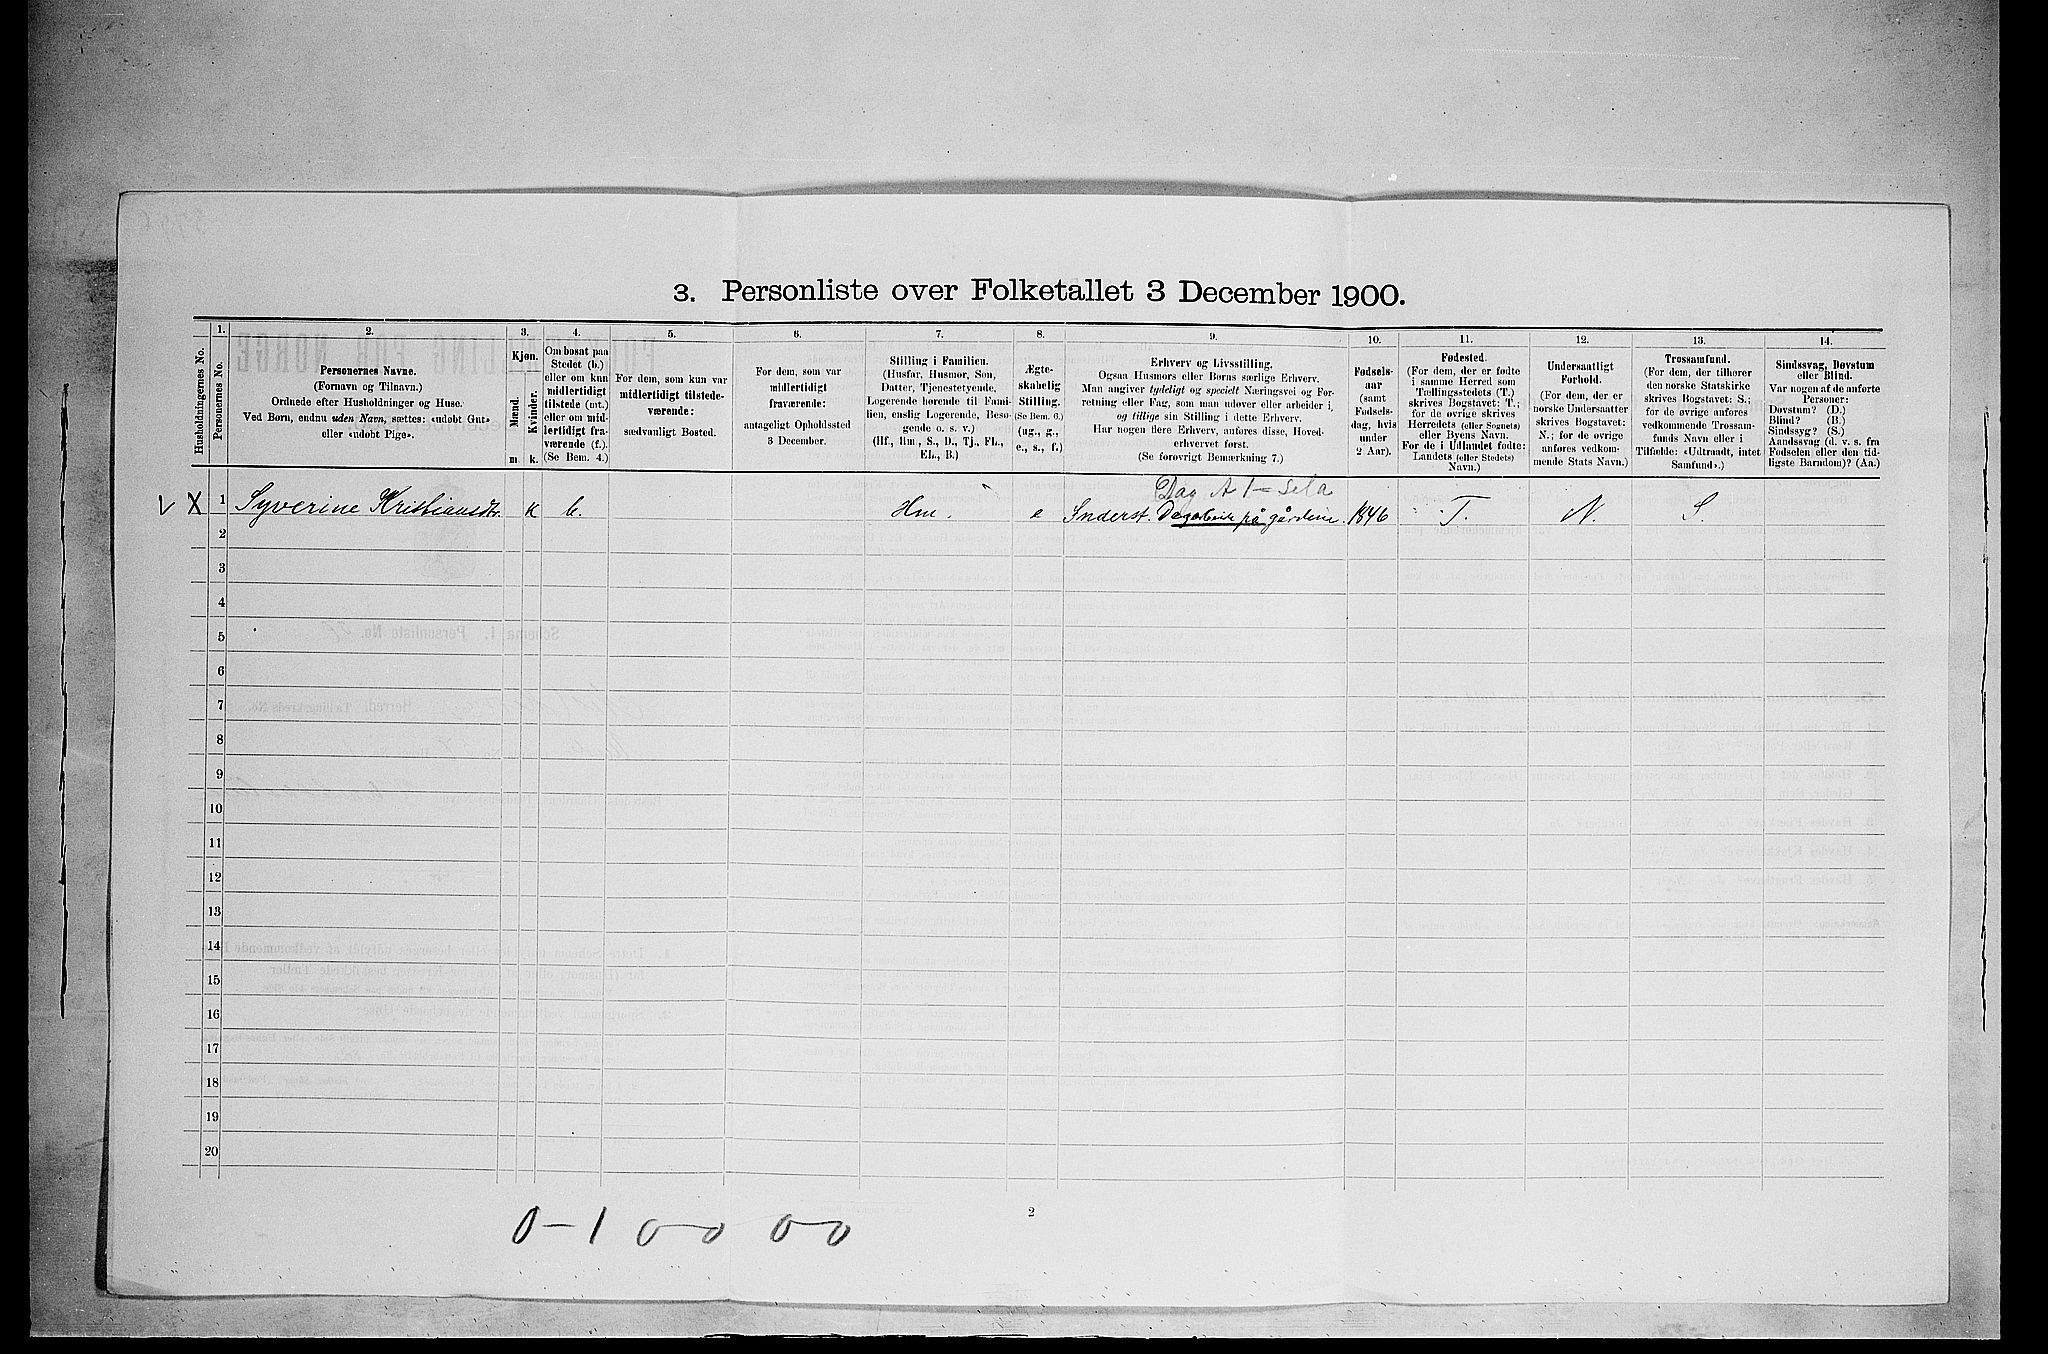 3. Personliste over Folketallet 3 December 1900.
Husholdningernes No.
1.
Personernes No.
2.
Personernes Navne.
(Fornavn og Tilnavn.)
Ordnede efter Husholdninger og Huse.
Ved Børn, endnu uden Navn, sættes: «udøbt Gut»
eller «udøbt Pige».
3.
Kjøn.
Mænd.
Kvinder.
m.
k.
4.
Om bosat paa
Stedet (b.)
eller om kun
midlertidigt
tilstede (mt.)
eller om mid-
lertidigt fra-
værende (f.).
(Se Bem. 4.)
5.
For dem, som kun var
midlertidigt tilstede-
værende:
sædvanligt Bosted.
6.
For dem, som var
midlertidigt
fraværende:
antageligt Opholdssted
3 December.
7.
Stilling i Familien.
(Husfar, Husmor, Søn,
Datter, Tjenestetyende,
Logerende hørende til Fami-
lien, enslig Logerende, Besø-
gende o. s. v.)
(Hf., Hm., S., D., Tj., FL.,
EL., B.)
8.
Ægte-
skabelig
Stilling.
(Se Bem. 6.)
(ug., g.,
e., s., f.)
9.
Erhverv og Livsstilling.
Ogsaa Husmors eller Børns særlige Erhverv.
Man angiver tydeligt og specielt Næringsvei og For-
retning eller Fag, som man udøver eller arbeider i,
og tillige sin Stilling i dette Erhverv.
Har nogen flere Erhverv, anføres disse, Hoved-
erhvervet først.
(Se forøvrigt Bemærkning 7.)
10.
Fødsels-
aar
(samt
Fødsels-
dag, hvis
under
2 Aar).
11.
Fødested.
(For dem, der er fødte
i samme Herred som
Tællingsstedets (T.)
skrives Bogstavet: T.;
for de øvrige skrives
Herredets (eller Sognets)
eller Byens Navn.
For de i Udlandet fødte:
Landets (eller Stedets)
Navn.)
12.
Undersaatligt
Forhold.
(For dem, der er
norske Undersaatter
skrives Bogstavet:
N.; for de øvrige
anføres vedkom-
mende Stats Navn.)
13.
Trossamfund.
(For dem, der tilhører
den norske Statskirke
skrives Bogstavet: S.;
for de øvrige anføres
vedkommende Trossam-
funds Navn eller i
Tilfælde: «Udtraadt, intet
Samfund».)
14.
Sindssvag, Døvstum
eller Blind.
Var nogen af de anførte
Personer:
Døvstum? (D.)
Blind? (B.)
Sindssyg? (S.)
Aandssvag (d. v. s. fra
Fødselen eller den tid-
ligste Barndom)? (Aa.)
Dag A
V X 1 Syverine Kristiansdtr. k b. Hm. e Inderst. Dagarbeide på gårdene. 1846 T. N. S.
2
3
4
5
6
7
8
9
10
11
12
13
14
15
16
17
18
19
20
2
0-1 0-0 0-0